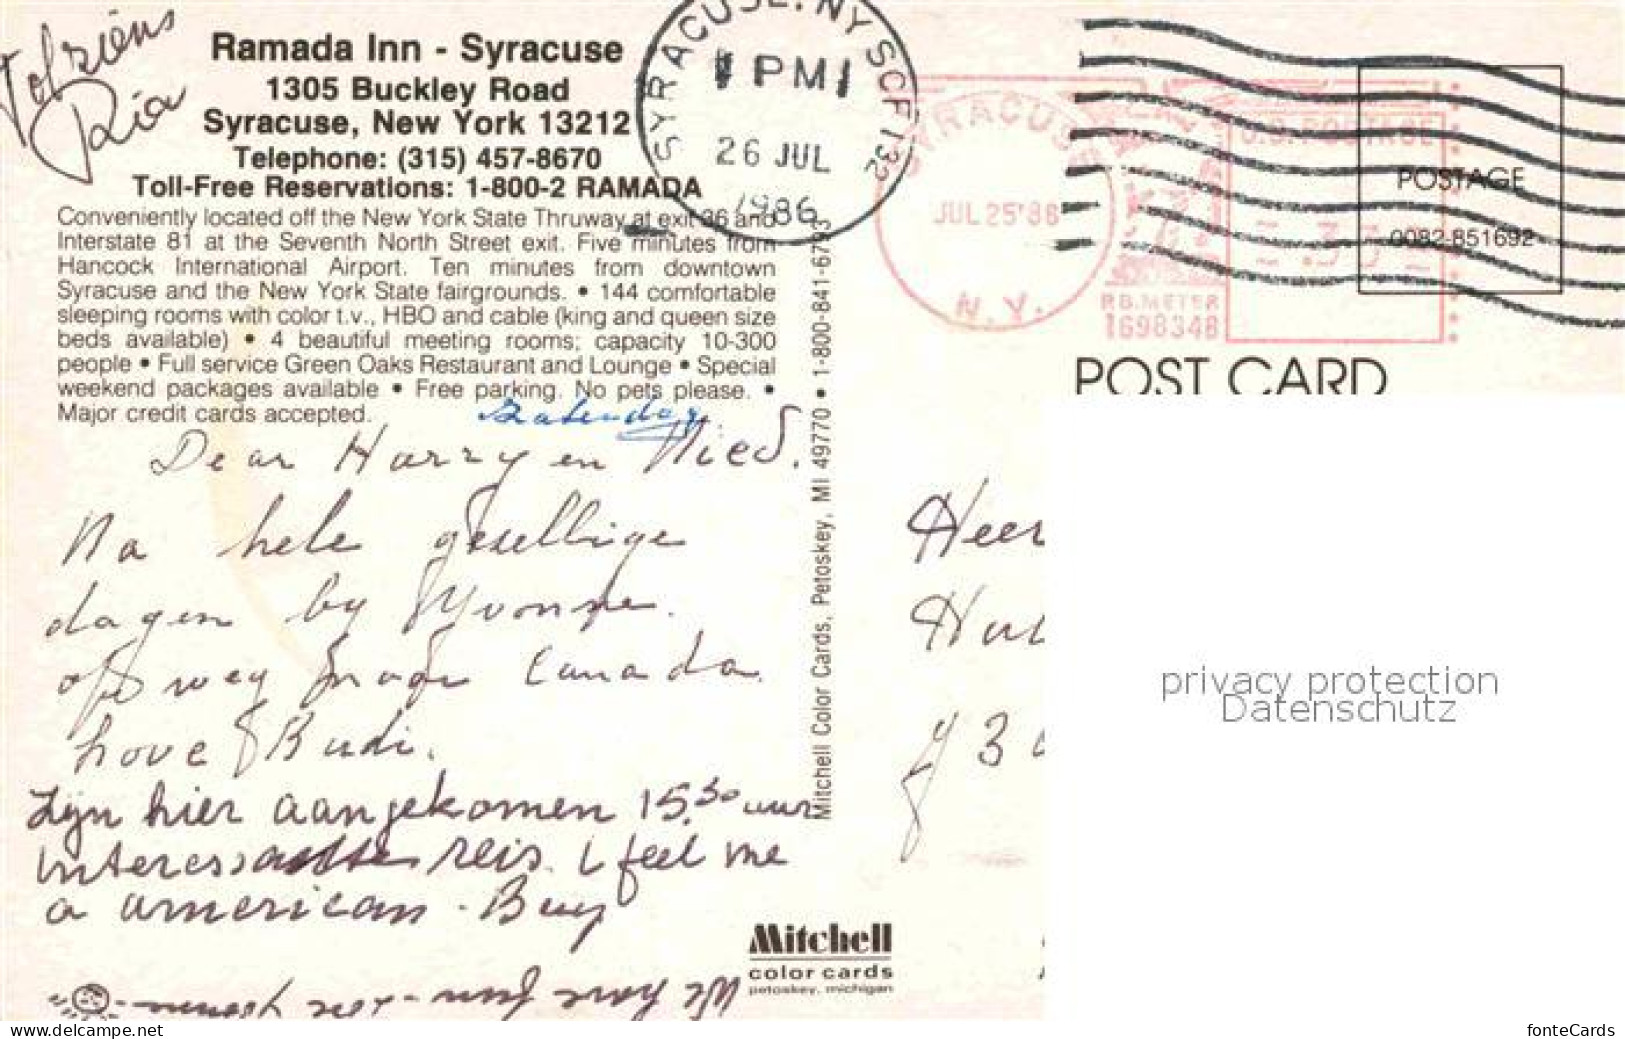 Tot ziens
Ria
Ramada Inn - Syracuse
1305 Buckley Road
Syracuse, New York 13212
Telephone: (315) 457-8670
Toll-Free Reservations: 1-800-2 RAMADA
Conveniently located off the New York State Thruway at exit 36 and
Interstate 81 at the Seventh North Street exit. Five minutes from
Hancock International Airport. Ten minutes from downtown
Syracuse and the New York State fairgrounds. • 144 comfortable
sleeping rooms with color t.v., HBO and cable (king and queen size
beds available) • 4 beautiful meeting rooms; capacity 10-300
people • Full service Green Oaks Restaurant and Lounge • Special
weekend packages available • Free parking. No pets please. •
Major credit cards accepted.
Dear Harry en Nied.
Na hele gesellige
dagen by Yvonne.
op weg naar Canada.
Love Budi.
Zijn hier aangekomen 15.30 uur
interessante reis. I feel me
a american. Buy
We have fun
Mitchell
color cards
petoskey, michigan
Mitchell Color Cards, Petoskey, MI 49770 • 1-800-841-6793
SYRACUSE, NY SCF 132
PM
26 JUL
1986
SYRACUSE
JUL 25'86
N.Y.
P.B. METER
1698348
U.S. POSTAGE
POSTAGE
0082-851692
POST CARD
Heer
privacy protection
Datenschutz
www.ansichtskarte.com
fonteCards